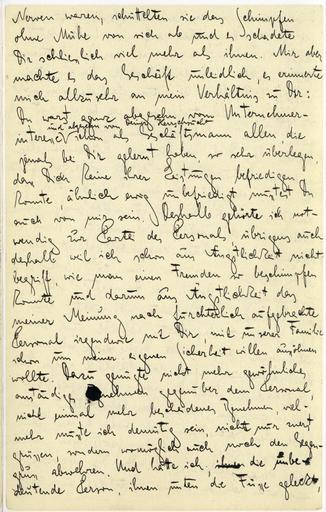 Nerven waren, schüttelten sie das Schimpfen
ohne Mühe von sich ab und es schadete
Dir schliesslich viel mehr als ihnen. Mir aber
machte es das Geschäft unleidlich, es erinnerte
mich allzusehr an mein Verhältnis zu Dir:
Du warst, ganz abgesehen vom Unternehmer-
und abgesehn von Deiner Herrschsucht
interesse schon als Geschäftsmann allen die
jemals bei Dir gelernt haben, so sehr überlegen,
dass Dich keine ihrer Leistungen befriedigen
konnte, ähnlich ewig unbefriedigt musstest Du
auch von mir sein. Deshalb gehörte ich not-
wendig zur Partei des Personals, übrigens auch
deshalb weil ich schon aus Ängstlichkeit nicht
begriff, wie man einen Fremden so beschimpfen
konnte und darum aus Ängstlichkeit das
meiner Meinung nach fürchterlich aufgebrachte
Personal irgendwie mit Dir, mit unserer Familie
schon um meiner eigenen Sicherheit willen aussöhnen
wollte. Dazu genügte nicht mehr gewöhnliches
anständiges Benehmen gegenüber dem Personal,
nicht einmal mehr bescheidenes Benehmen, viel-
mehr musste ich demütig sein, nicht nur zuerst
grüssen, sondern womöglich auch noch den Gegen-
gruss abwehren. Und hätte ich, die unbe-
deutende Person, ihnen unten die Füsse geleckt,